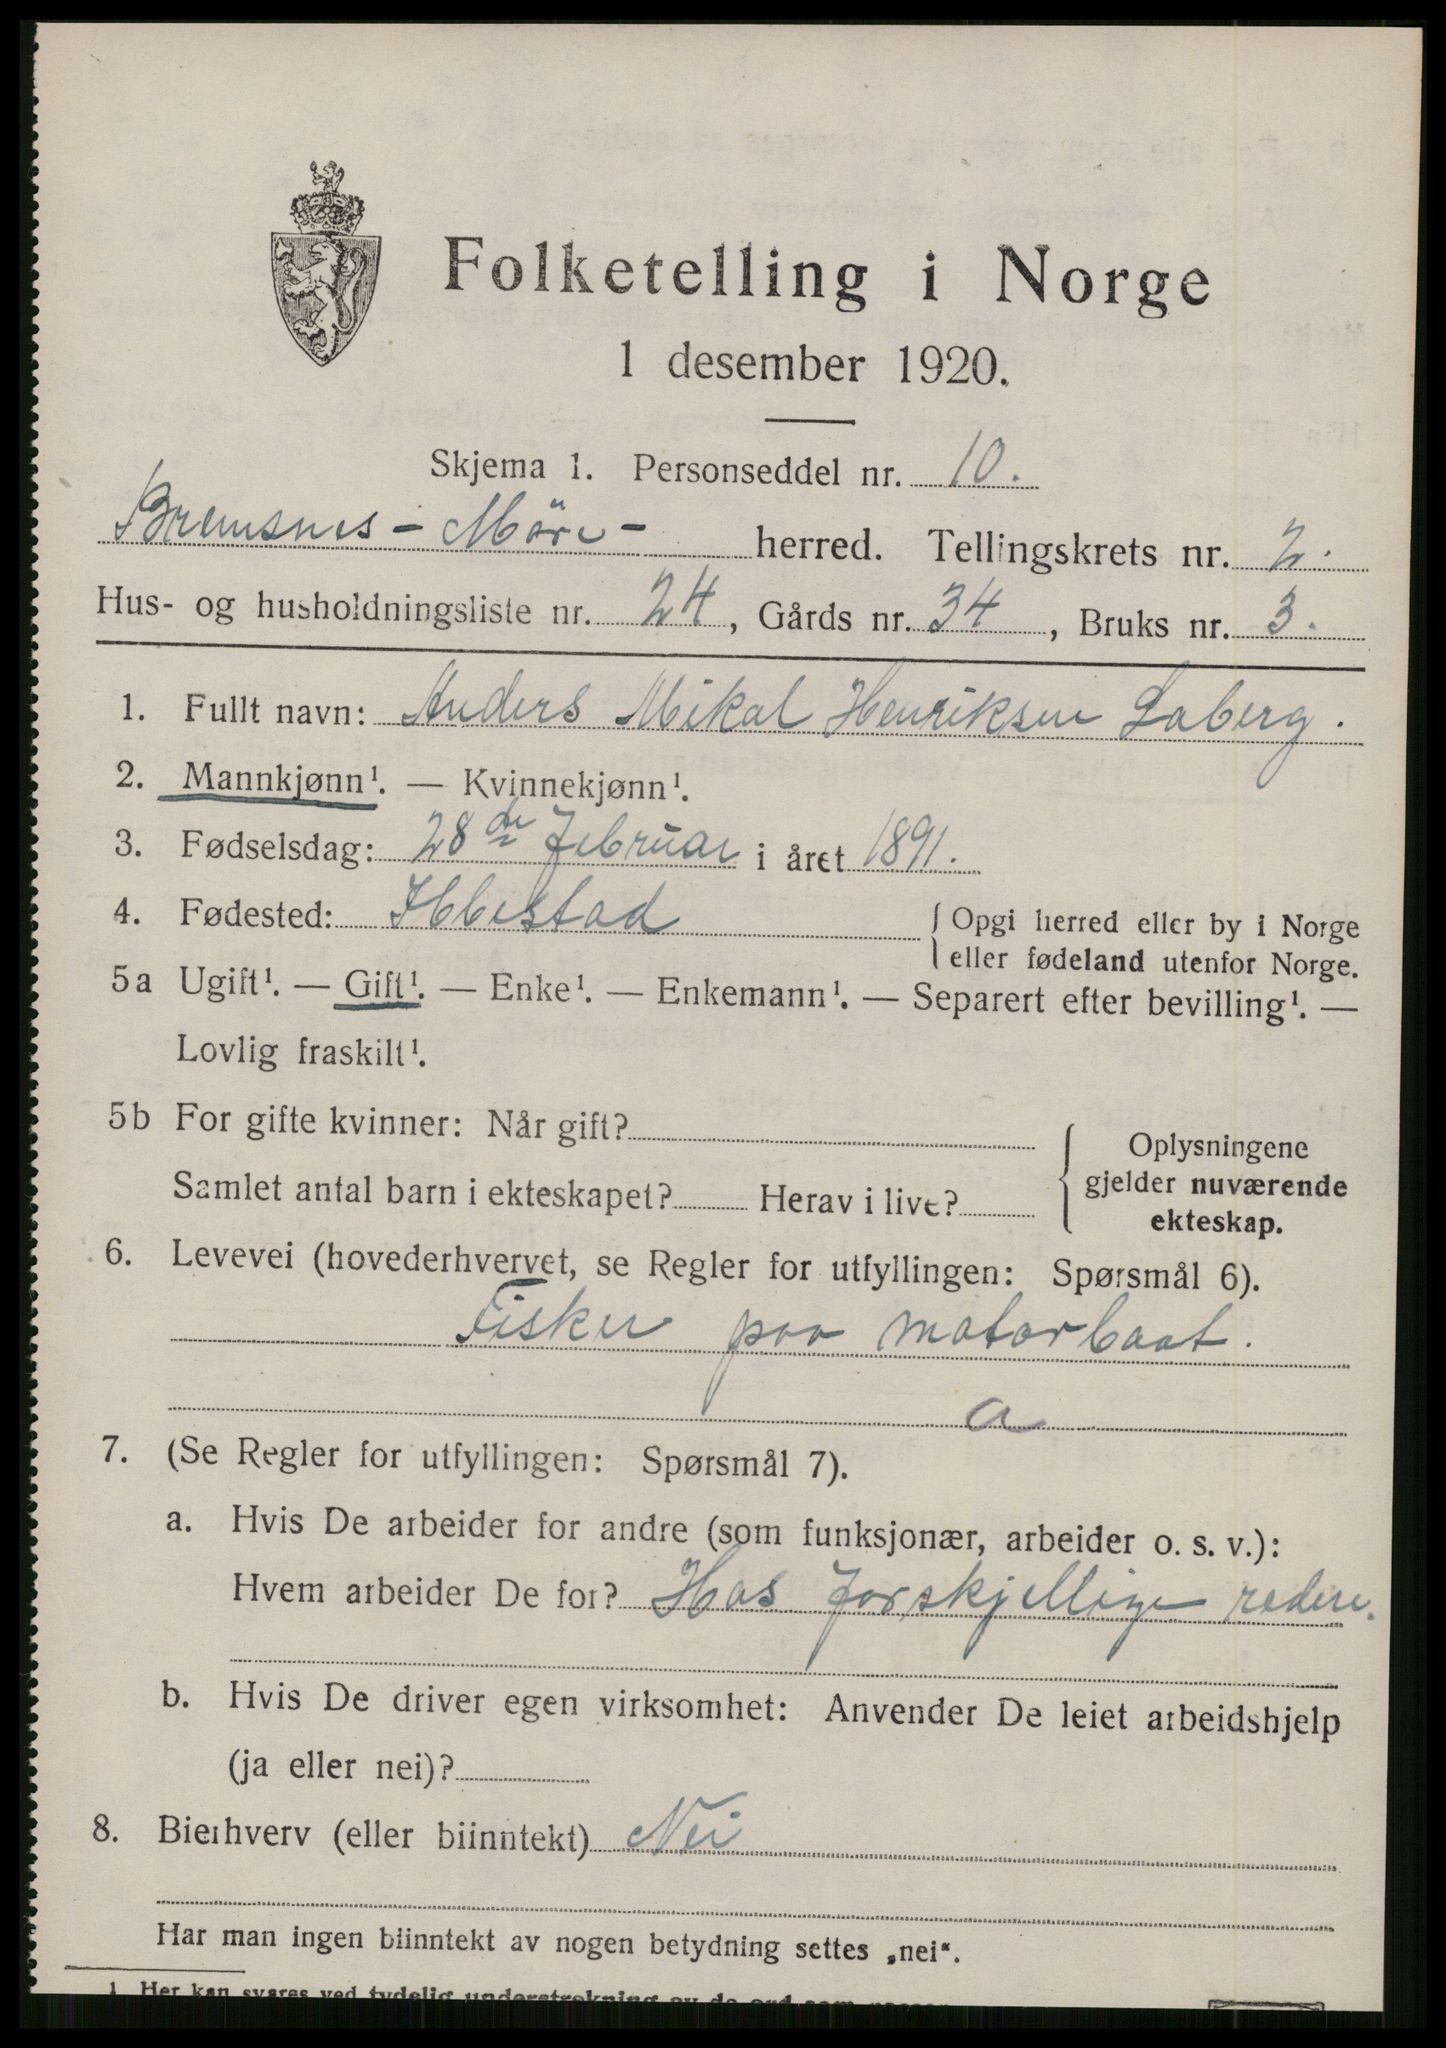 Folketelling i Norge
1 desember 1920.
Skjema 1. Personseddel nr. 10.
Bremsnes - Möre - herred. Tellingskrets nr. 2.
Hus- og husholdningsliste nr. 24, Gårds nr. 34, Bruks nr. 3.
1. Fullt navn: Anders Mikal Henriksen Laberg.
2. Mannkjønn¹. — Kvinnekjønn¹.
3. Fødselsdag: 28de Februar i året 1891.
4. Fødested: Ibbestad { Opgi herred eller by i Norge
eller fødeland utenfor Norge.
5a Ugift¹. — Gift¹. — Enke¹. — Enkemann¹. — Separert efter bevilling¹. —
Lovlig fraskilt¹.
5b For gifte kvinner: Når gift? { Oplysningene
Samlet antal barn i ekteskapet? Herav i live? gjelder nuværende
ekteskap.
6. Levevei (hovederhvervet, se Regler for utfyllingen: Spørsmål 6).
Fisker paa motorbaat.
a
7. (Se Regler for utfyllingen: Spørsmål 7).
a. Hvis De arbeider for andre (som funksjonær, arbeider o. s. v.):
Hvem arbeider De for? Hos forskjellige redere.
b. Hvis De driver egen virksomhet: Anvender De leiet arbeidshjelp
(ja eller nei)?
8. Bierhverv (eller biinntekt) Nei
Har man ingen biinntekt av nogen betydning settes „nei“.
1 Her kan svares ved tydelig understrekning av de ord som passer